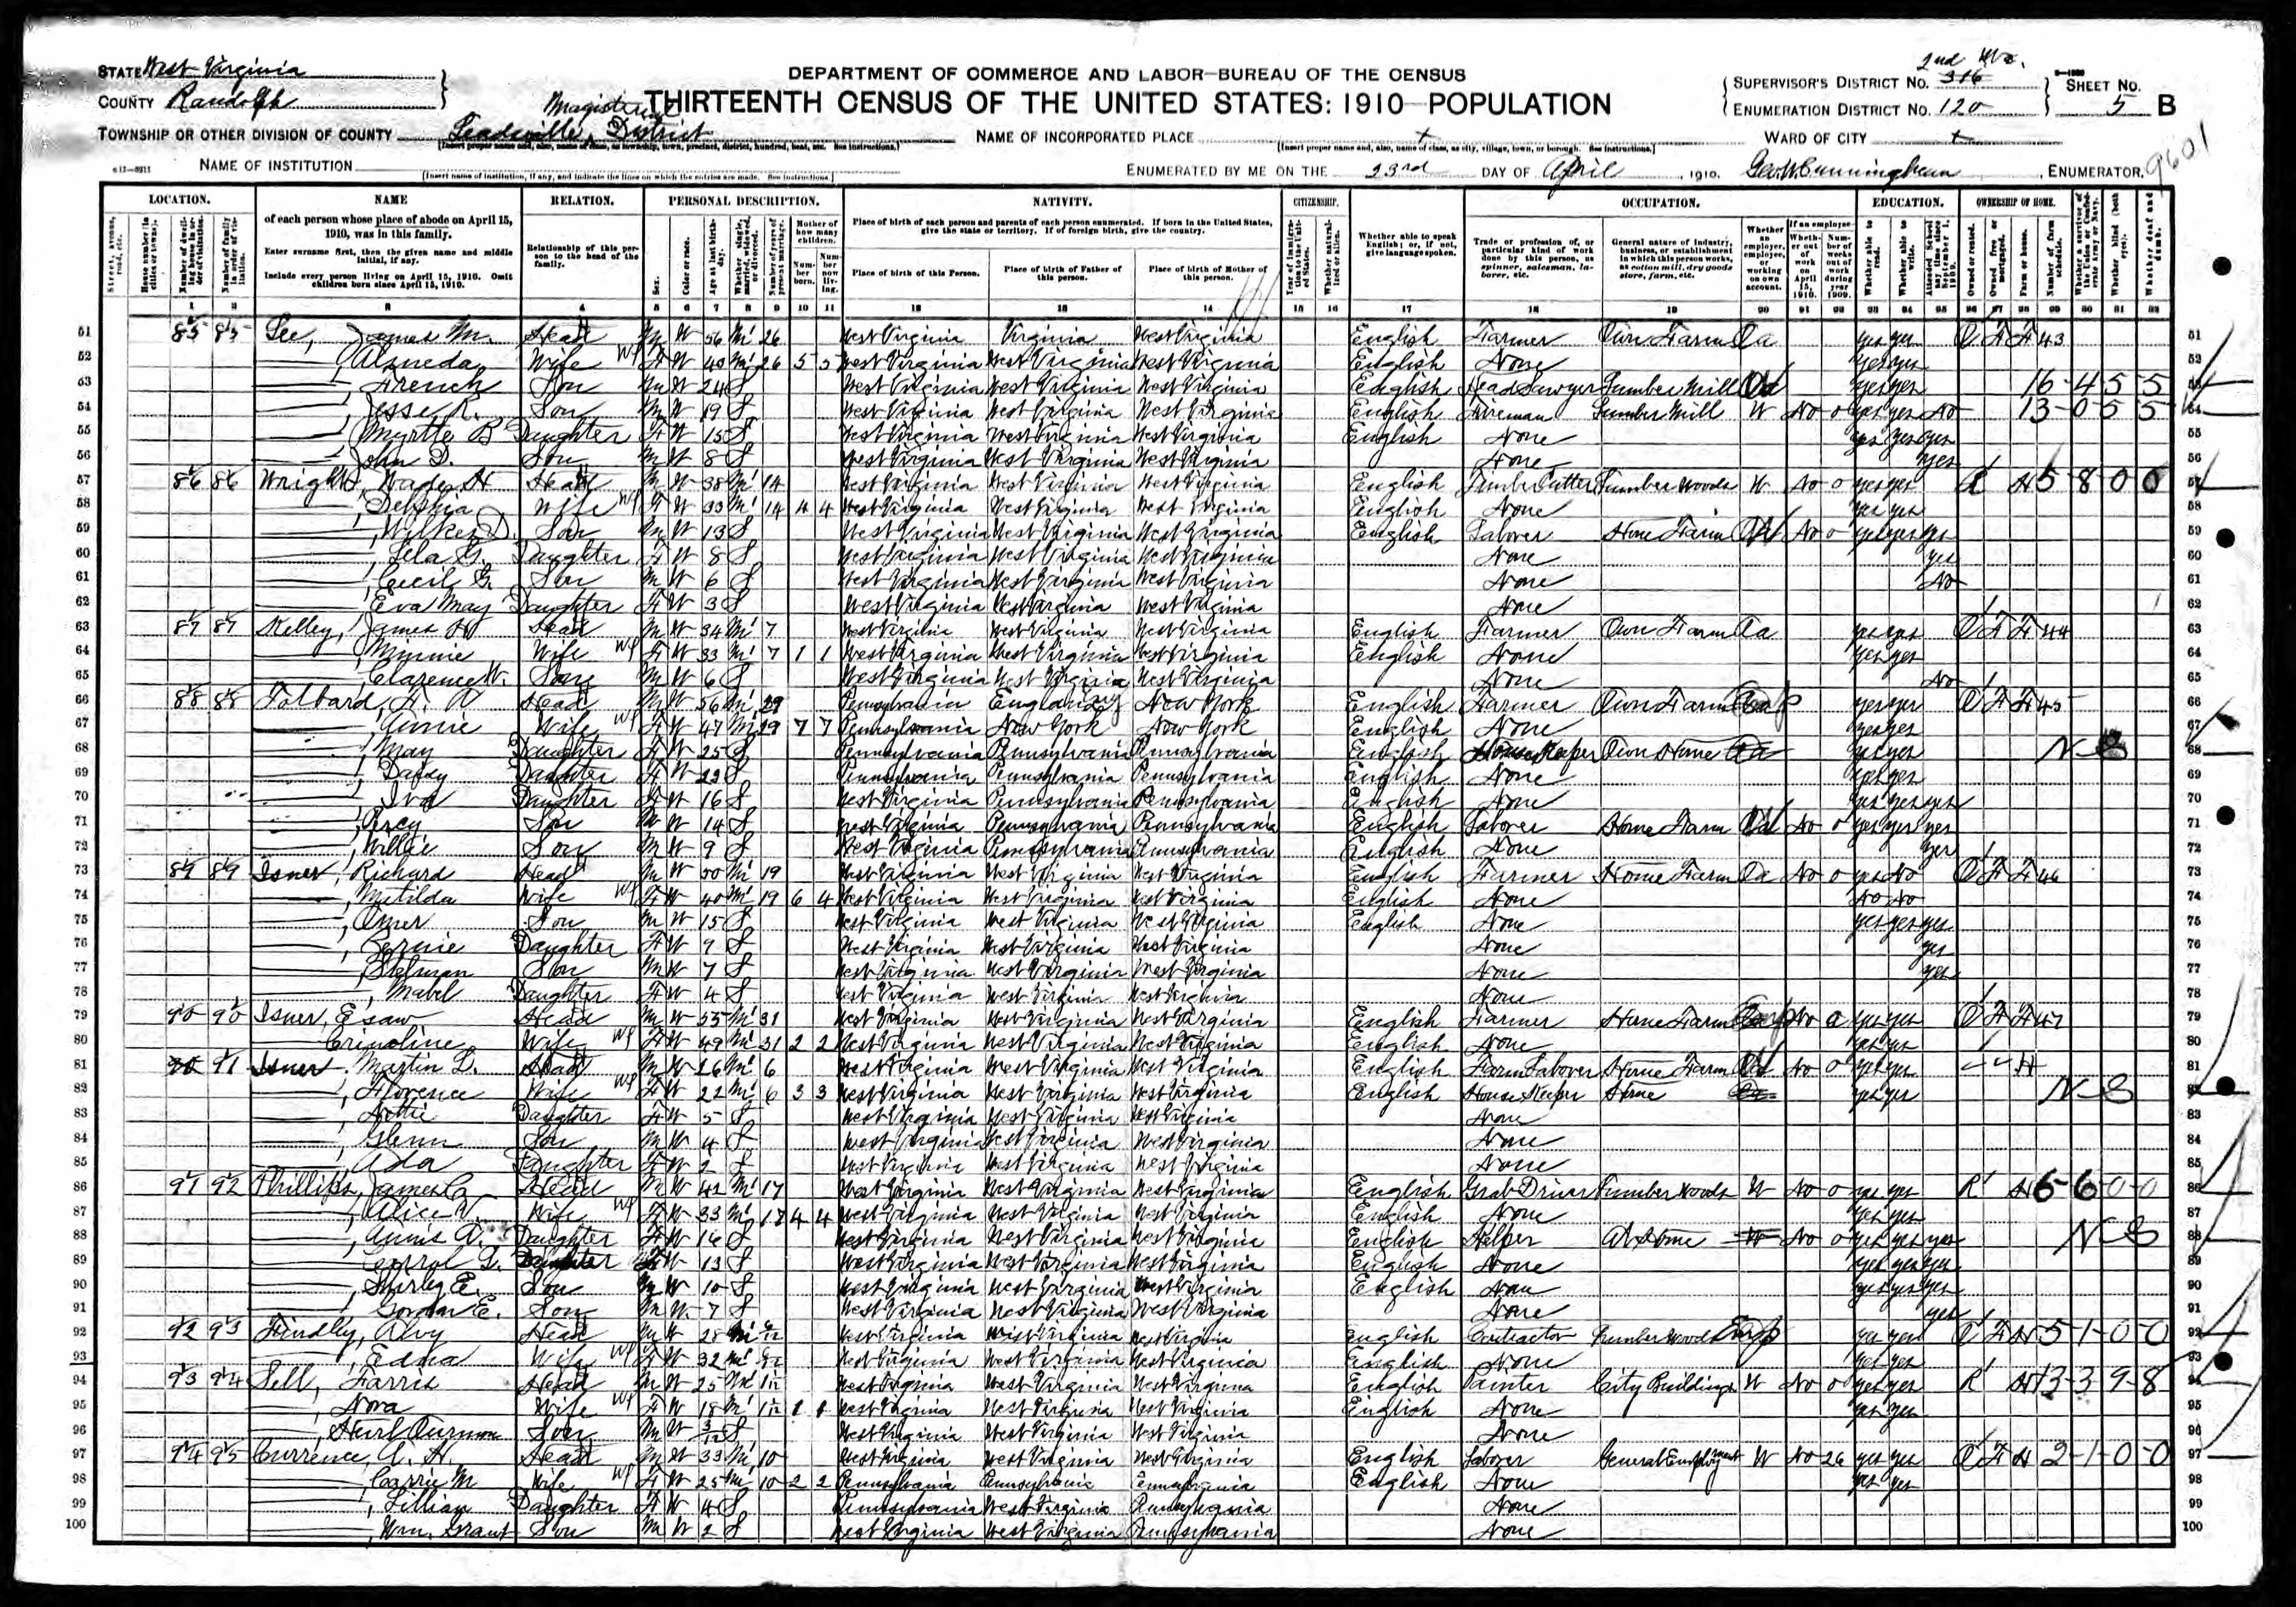 STATE West Virginia
COUNTY Randolph
TOWNSHIP OR OTHER DIVISION OF COUNTY Leadsville Magisterial District
[Insert proper name and, also, name of class, as township, town, precinct, district, hundred, beat, etc. See instructions.]
NAME OF INSTITUTION
[Insert name of institution, if any, and indicate the lines on which the entries are made. See instructions.]
DEPARTMENT OF COMMERCE AND LABOR—BUREAU OF THE CENSUS
THIRTEENTH CENSUS OF THE UNITED STATES: 1910—POPULATION
NAME OF INCORPORATED PLACE
[Insert proper name and, also, name of class, as city, village, town, or borough. See instructions.]
ENUMERATED BY ME ON THE 23rd DAY OF April, 1910. Geo. W. Cunningham, ENUMERATOR.
2nd W.Va.
SUPERVISOR'S DISTRICT NO. 316
ENUMERATION DISTRICT NO. 120
SHEET NO. 5 B
WARD OF CITY
9601
LOCATION. NAME RELATION. PERSONAL DESCRIPTION. NATIVITY. CITIZENSHIP. OCCUPATION. EDUCATION. OWNERSHIP OF HOME.
of each person whose place of abode on April 15, 1910, was in this family.
Enter surname first, then the given name and middle initial, if any.
Include every person living on April 15, 1910. Omit children born since April 15, 1910.
Relationship of this person to the head of the family.
Place of birth of each person and parents of each person enumerated. If born in the United States, give the state or territory. If of foreign birth, give the country.
Place of birth of this Person. Place of birth of Father of this person. Place of birth of Mother of this person.
Whether able to speak English; or, if not, give language spoken.
Trade or profession of, or particular kind of work done by this person, as spinner, salesman, laborer, etc.
General nature of industry, business, or establishment in which this person works, as cotton mill, dry goods store, farm, etc.
51 85 85 Lee, James M. Head M W 56 M1 26 West Virginia Virginia West Virginia English Farmer Own Farm Oa yes yes O F F 43
52 Almeda Wife F W 40 M1 26 5 5 West Virginia West Virginia West Virginia English None yes yes
53 French Son M W 24 S West Virginia West Virginia West Virginia English Head Sawyer Lumber Mill yes yes 16-4 5 5
54 Jesse R. Son M W 19 S West Virginia West Virginia West Virginia English Fireman Lumber Mill W No 0 yes yes No 13-0 5 5
55 Myrtle B Daughter F W 15 S West Virginia West Virginia West Virginia English None yes yes yes
56 John D. Son M W 8 S West Virginia West Virginia West Virginia None yes
57 86 86 Wright, Wade H Head M W 38 M1 14 West Virginia West Virginia West Virginia English Timber Cutter Lumber Woods W No 0 yes yes R H 5-8 0 0
58 Delphia Wife F W 33 M1 14 4 4 West Virginia West Virginia West Virginia English None yes yes
59 Wilker D. Son M W 13 S West Virginia West Virginia West Virginia English Laborer Home Farm W No 0 yes yes yes
60 Lela G. Daughter F W 8 S West Virginia West Virginia West Virginia None yes
61 Cecil G. Son M W 6 S West Virginia West Virginia West Virginia None No
62 Eva May Daughter F W 3 S West Virginia West Virginia West Virginia None
63 87 87 Kelley, James W Head M W 34 M1 7 West Virginia West Virginia West Virginia English Farmer Own Farm Oa yes yes O F F 44
64 Minnie Wife F W 33 M1 7 1 1 West Virginia West Virginia West Virginia English None yes yes
65 Clarence W. Son M W 6 S West Virginia West Virginia West Virginia None No
66 88 88 Head M W 56 M1 29 Pennsylvania England New York English Farmer Own Farm yes yes O F F 45
67 Annie Wife F W 47 M1 29 7 7 Pennsylvania New York New York English None yes yes
68 May Daughter F W 25 S Pennsylvania Pennsylvania Pennsylvania English House Keeper Own Home yes yes
69 Daisy Daughter F W 22 S Pennsylvania Pennsylvania Pennsylvania English None yes yes
70 Iva Daughter F W 16 S West Virginia Pennsylvania Pennsylvania English None yes yes yes
71 Percy Son M W 14 S West Virginia Pennsylvania Pennsylvania English Laborer Home Farm No 0 yes yes yes
72 Willie Son M W 9 S West Virginia Pennsylvania Pennsylvania English None yes
73 89 89 Isner, Richard Head M W 50 M1 19 West Virginia West Virginia West Virginia English Farmer Home Farm Oa No 0 yes No O F F 46
74 Matilda Wife F W 40 M1 19 6 4 West Virginia West Virginia West Virginia English None No No
75 Omer Son M W 15 S West Virginia West Virginia West Virginia English None yes yes yes
76 Daughter F W 9 S West Virginia West Virginia West Virginia None yes
77 Son M W 7 S West Virginia West Virginia West Virginia None yes
78 Mabel Daughter F W 4 S West Virginia West Virginia West Virginia None
79 90 90 Isner, Esaw Head M W 55 M1 31 West Virginia West Virginia West Virginia English Farmer Home Farm No 0 yes yes O F F 47
80 Crinoline Wife F W 49 M1 31 2 2 West Virginia West Virginia West Virginia English None yes yes
81 90 91 Isner Martin L. Head M W 26 M1 6 West Virginia West Virginia West Virginia English Farm Laborer Home Farm No 0 yes yes H
82 Florence Wife F W 22 M1 6 3 3 West Virginia West Virginia West Virginia English House Keeper Home yes yes
83 Lottie Daughter F W 5 S West Virginia West Virginia West Virginia None
84 Glenn Son M W 4 S West Virginia West Virginia West Virginia None
85 Ada Daughter F W 2 S West Virginia West Virginia West Virginia None
86 91 92 Phillips, James C. Head M W 42 M1 17 West Virginia West Virginia West Virginia English Grab Driver Lumber Woods W No 0 yes yes R H 5-6-0-0
87 Alice V. Wife F W 33 M1 17 4 4 West Virginia West Virginia West Virginia English None yes yes
88 Annis A. Daughter F W 16 S West Virginia West Virginia West Virginia English Helper At Home W No 0 yes yes yes
89 Carrol L. Daughter F W 13 S West Virginia West Virginia West Virginia English None yes yes yes
90 Shirley E. Son M W 10 S West Virginia West Virginia West Virginia English None yes yes yes
91 Gordon E. Son M W 7 S West Virginia West Virginia West Virginia None yes
92 92 93 Findley, Alvy Head M W 28 M1 West Virginia West Virginia West Virginia English Contractor Lumber Woods Emp yes yes O F H 5-1-0-0
93 Edna Wife F W 32 M1 West Virginia West Virginia West Virginia English None yes yes
94 93 94 Sell, Farris Head M W 25 M1 West Virginia West Virginia West Virginia English Painter City Buildings W No 0 yes yes R H 13-3 9-8
95 Nora Wife F W 18 M1 1 1 West Virginia West Virginia West Virginia English None yes yes
96 Son M W 3/12 S West Virginia West Virginia West Virginia None
97 94 95 Currence, A. H. Head M W 33 M1 10 West Virginia West Virginia West Virginia English Laborer General Employment W No 26 yes yes O F H 2-1-0-0
98 Carrie M Wife F W 25 M1 10 2 2 Pennsylvania Pennsylvania Pennsylvania English None yes yes
99 Lillian Daughter F W 4 S Pennsylvania West Virginia Pennsylvania None
100 Wm. Grant Son M W 2 S West Virginia West Virginia Pennsylvania None